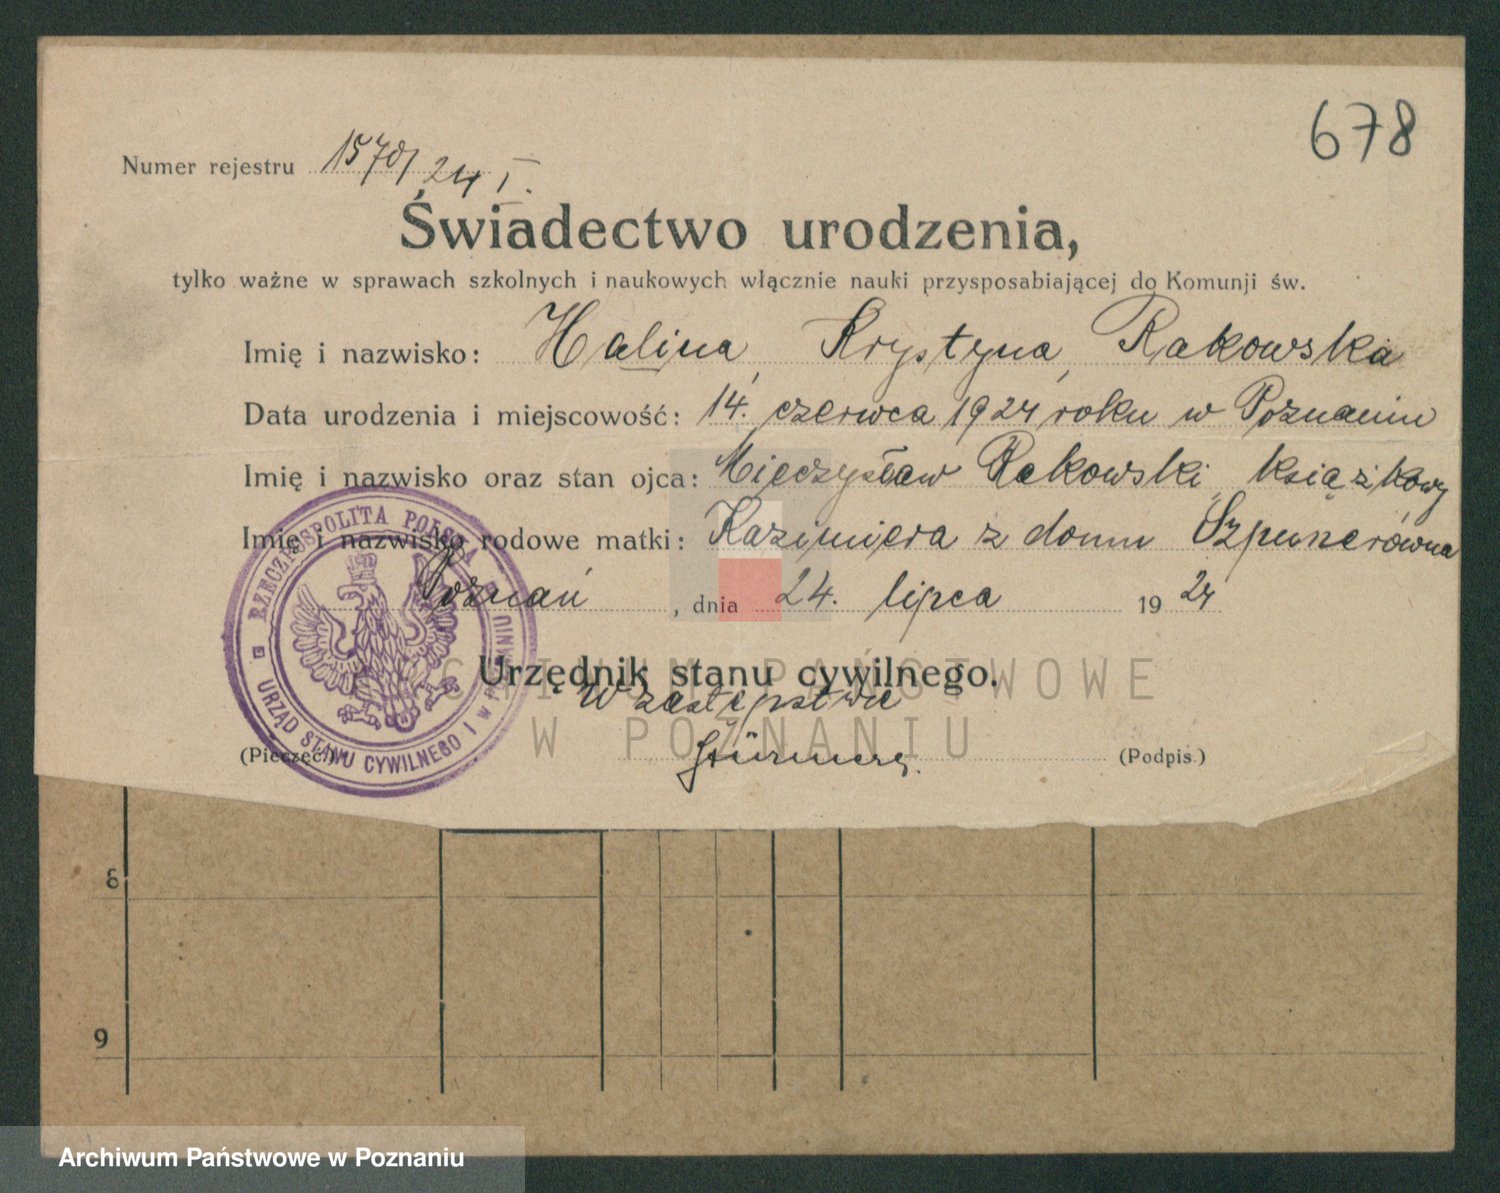 678
Numer rejestru 1570/24 I.
Świadectwo urodzenia,
tylko ważne w sprawach szkolnych i naukowych włącznie nauki przysposabiającej do Komunji św.
Imię i nazwisko: Halina, Krystyna, Rakowska
Data urodzenia i miejscowość: 14. czerwca 1924 roku w Poznaniu
Imię i nazwisko oraz stan ojca: Mieczysław Rakowski, książkowy
Imię i nazwisko rodowe matki: Kazimiera z domu Szpunerówna
Poznań, dnia 24. lipca 1924
Urzędnik stanu cywilnego.
W zastępstwie
(Pieczęć) (Podpis.)
RZECZPOSPOLITA POLSKA
URZĄD STANU CYWILNEGO I W POZNANIU
ARCHIWUM PAŃSTWOWE
W POZNANIU
8
9
Archiwum Państwowe w Poznaniu